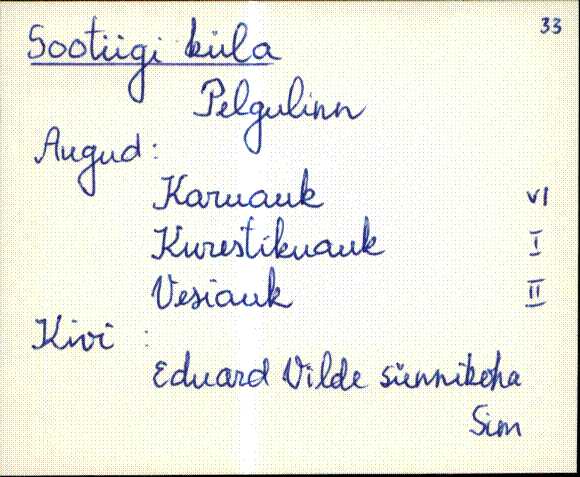 33
Sootiigi küla
Pelgulinn
Augud:
Karuauk VI
Kurestikuauk I
Vesiauk II
Kivi :
Eduard Vilde sünnikoha
Sim